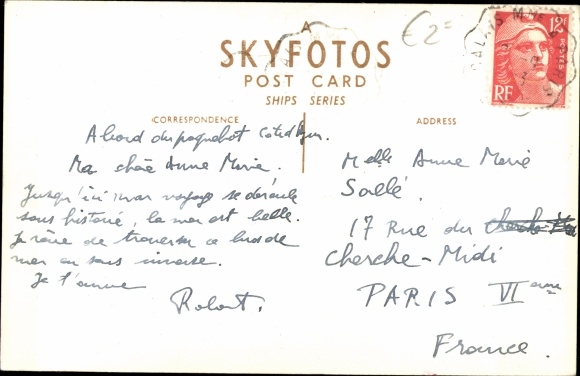 €2=
A
SKYFOTOS
POST CARD
SHIPS SERIES
CORRESPONDENCE
ADDRESS
12F
POSTES
RF
CALAIS
A bord du paquebot Cote d'Azur.
Ma chère Anne Marie.
Jusqu'ici mon voyage se déroule
sans histoire, la mer est belle.
Je rêve de traverser ce bras de
mer en sens inverse.
Je t'aime
Robert.
Melle Anne Marie
Saellé.
17 Rue du
Cherche-Midi
PARIS VI eme
France.